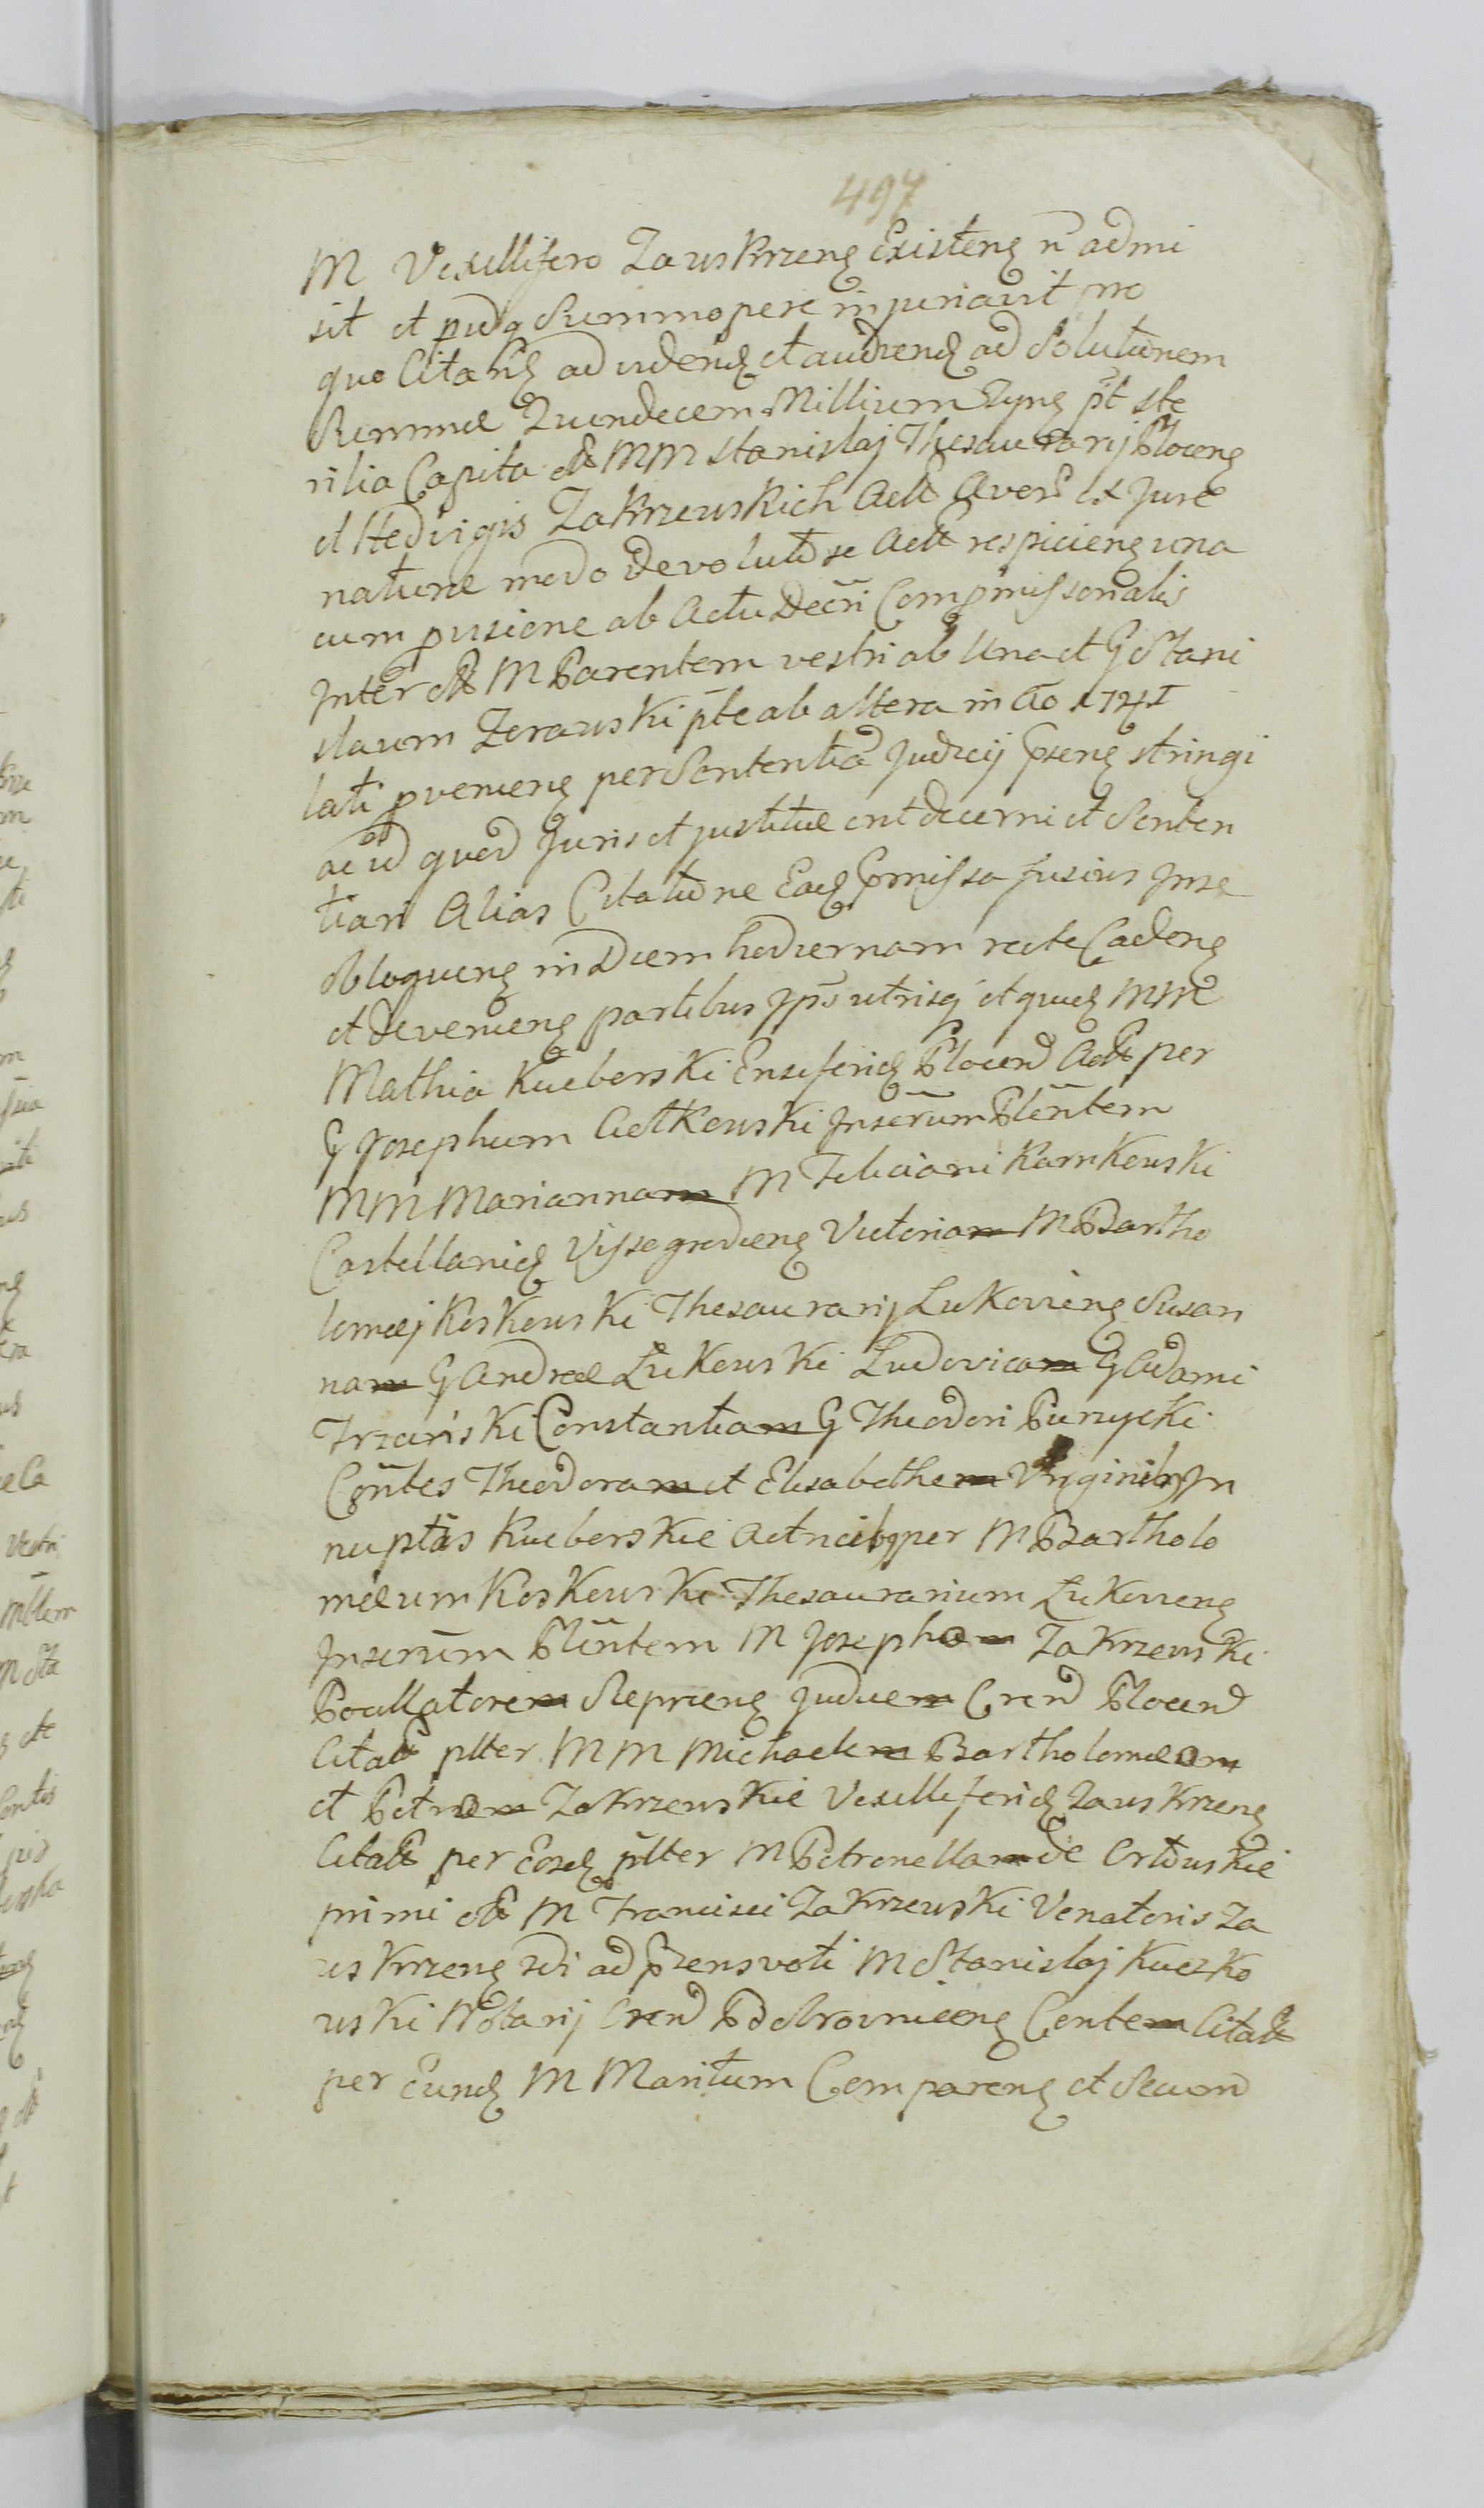 497
M Vexillifero Zawskrzeng Existeng n admi
sit et pudq Summopere injuriavit pro
quo Citanq ad videnq et audienq ad Solutionem
Summae Quindecem Millium Tyng pt ste
rilia Capita olt MM Stanislaj Thesaurarij Ploceng
et Hedvigis Zakrzewskich Actt Avor Ex Jure
naturae modo devolutorie Actt respicieng una
cum pvisione ab Actu Decri Compmissorialis
Inter olt M Parentem vestri ab Una et G Stani
slaum Zerawski pte ab altera in Ao 1741
lati pvenieng per Sententia Judicij Pseng stringi
ac id quod Juris et justitiae ent decerni et Senten
tiari Alias Citatione Eadq Pmissa fusius Inse
obloqueng in Diem hodiernam recte Cadeng
et devenieng partibus Ips utrisq et quidq MM
Mathia Kucborski Ensiferidq Plocen Actt per
G Josephum Ciolkowski Inserum Plentem
MM Mariannam M Feliciani Karnkowski
Castellanidq Vissegrodieng Victoriam M Bartho
lomaej Koskowski Thesaurarij Lukovieng Susan
nam G Andreae Lukowski Ludovicam G Adami
Trzciński Constantiam G Theodori Purzycki
Contes Theodoram et Elisabetham Virginibq In
nuptas Kuchorskie Actricibq per M Bartholo
maeum Koskowski Thesaurarium Lukovieng
Inserum Plentem M Josepham Zakrzewski
Pocillatorem Sieprceng Judicem Cren Plocen
Citatt plter MM Michaelem Bartholomaeom
et Petrum Zakrzewskie Vexilliferidq Zawskrzeng
Citatt per Eosdq plter M Petronellam de Orlowskie
primi olt M Francisci Zakrzewski Venatoris Za
wskrzeng 2di ad Psens voti M Stanislaj Kuczko
wski Notarij Cren Bobrovnieeng Contem Citatt
per Eundq M Maritum Compareng et Secum